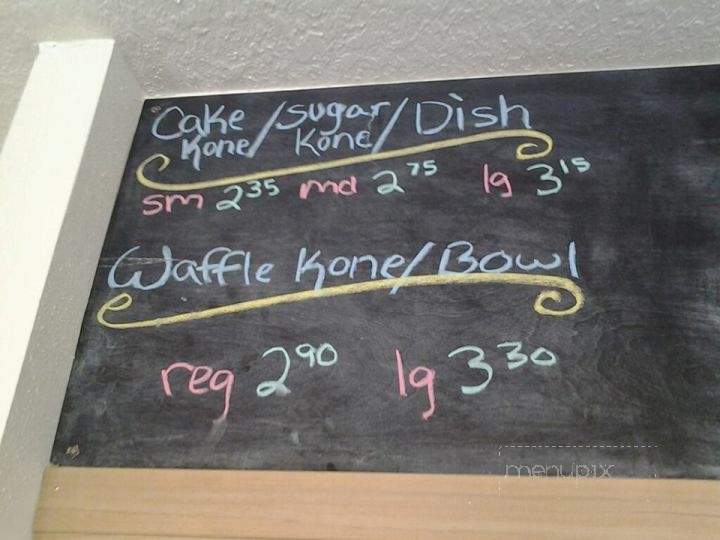 Cake Kone/Sugar Kone/Dish
sm 2.35 md 2.75 lg 3.15
Waffle Kone/Bowl
reg 2.90 lg 3.30
menupix